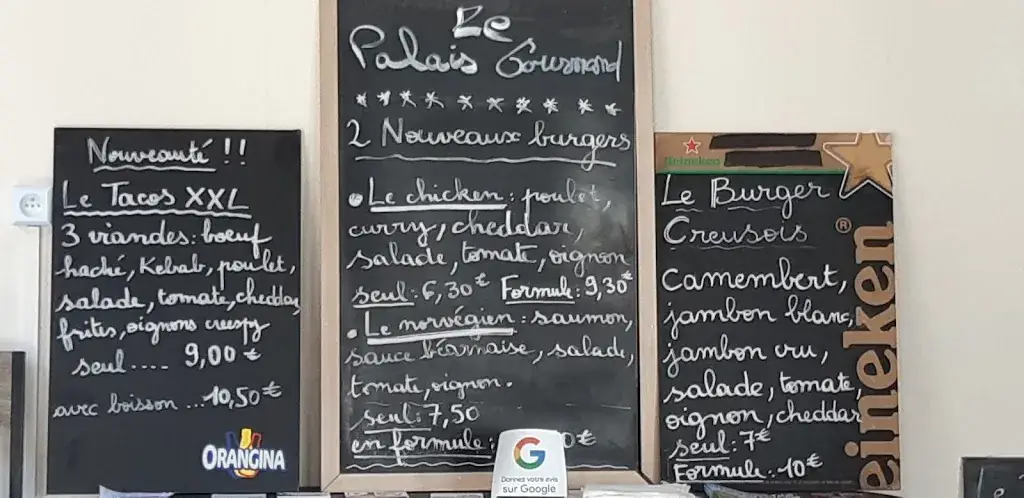 Nouveauté !!
Le Tacos XXL
3 viandes: boeuf
haché, Kebab, poulet,
salade, tomate, cheddar,
frites, oignons crispy
seul .... 9,00 €
avec boisson ... 10,50 €
ORANGINA
Le
Palais Gourmand
2 Nouveaux burgers
• Le chicken: poulet,
curry, cheddar,
salade, tomate, oignon
seul: 6,30 € Formule: 9,30 €
• Le norvégien: saumon,
sauce béarnaise, salade,
tomate, oignon.
seul: 7,50
en formule: 0 €
G
Donnez votre avis
sur Google
Heineken
Le Burger
Creusois
Camembert,
jambon blanc,
jambon cru,
salade, tomate
oignon, cheddar
seul: 7 €
Formule: 10 €
eineken ®